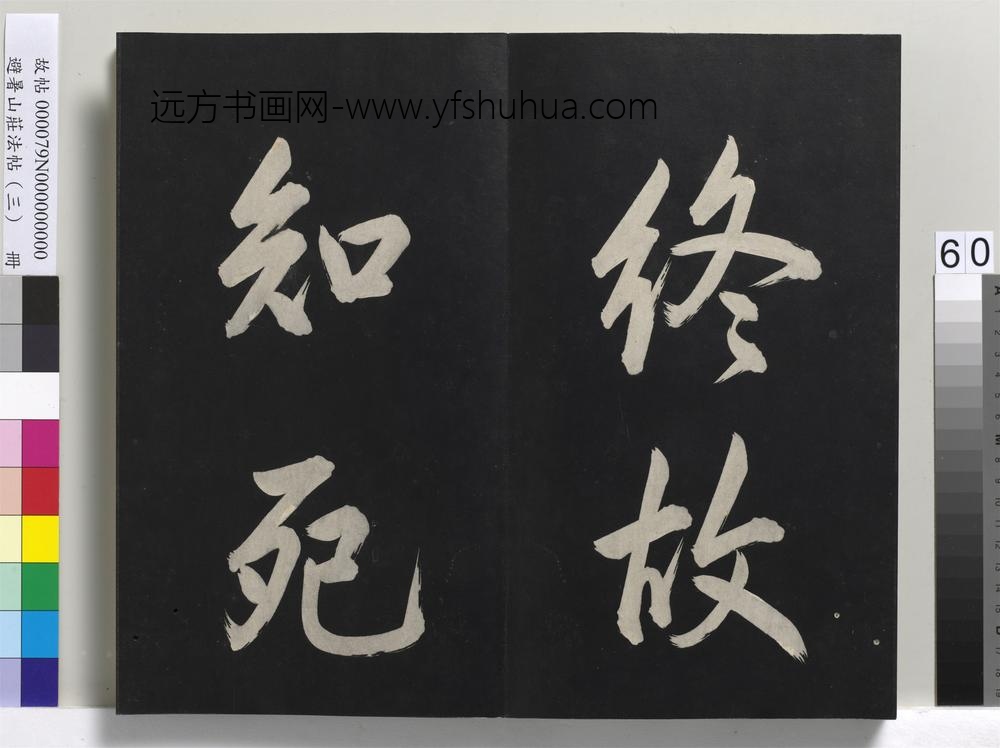 远方书画网-www.yfshuhua.com
終故
知死
故帖 000079N000000000
避暑山莊法帖（三） 冊
60